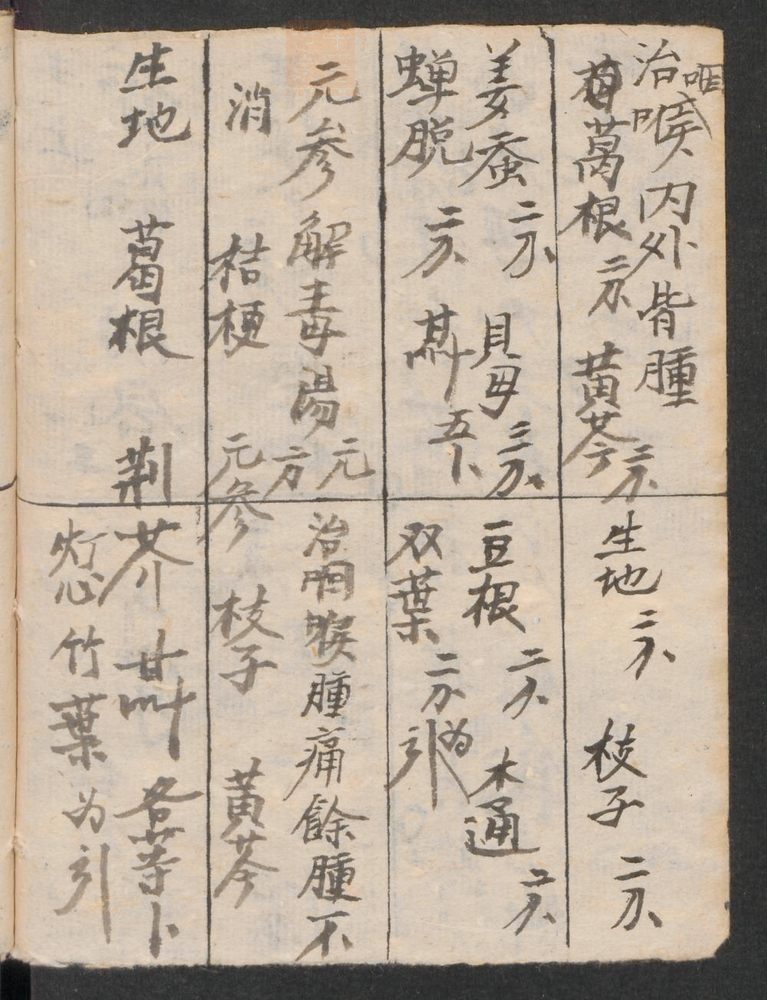 治咽喉內外皆腫
葛根二分 黃芩二分 生地二分 枝子二分
姜蚕二分 貝母二分 豆根二分 木通二分
蟬脱二分 五卜 双葉二分為引
元参解毒湯 元方 治咽喉腫痛餘腫不
消 桔梗 元参 枝子 黃芩
生地 葛根 荆芥 甘艸 各等卜
灯心竹葉为引